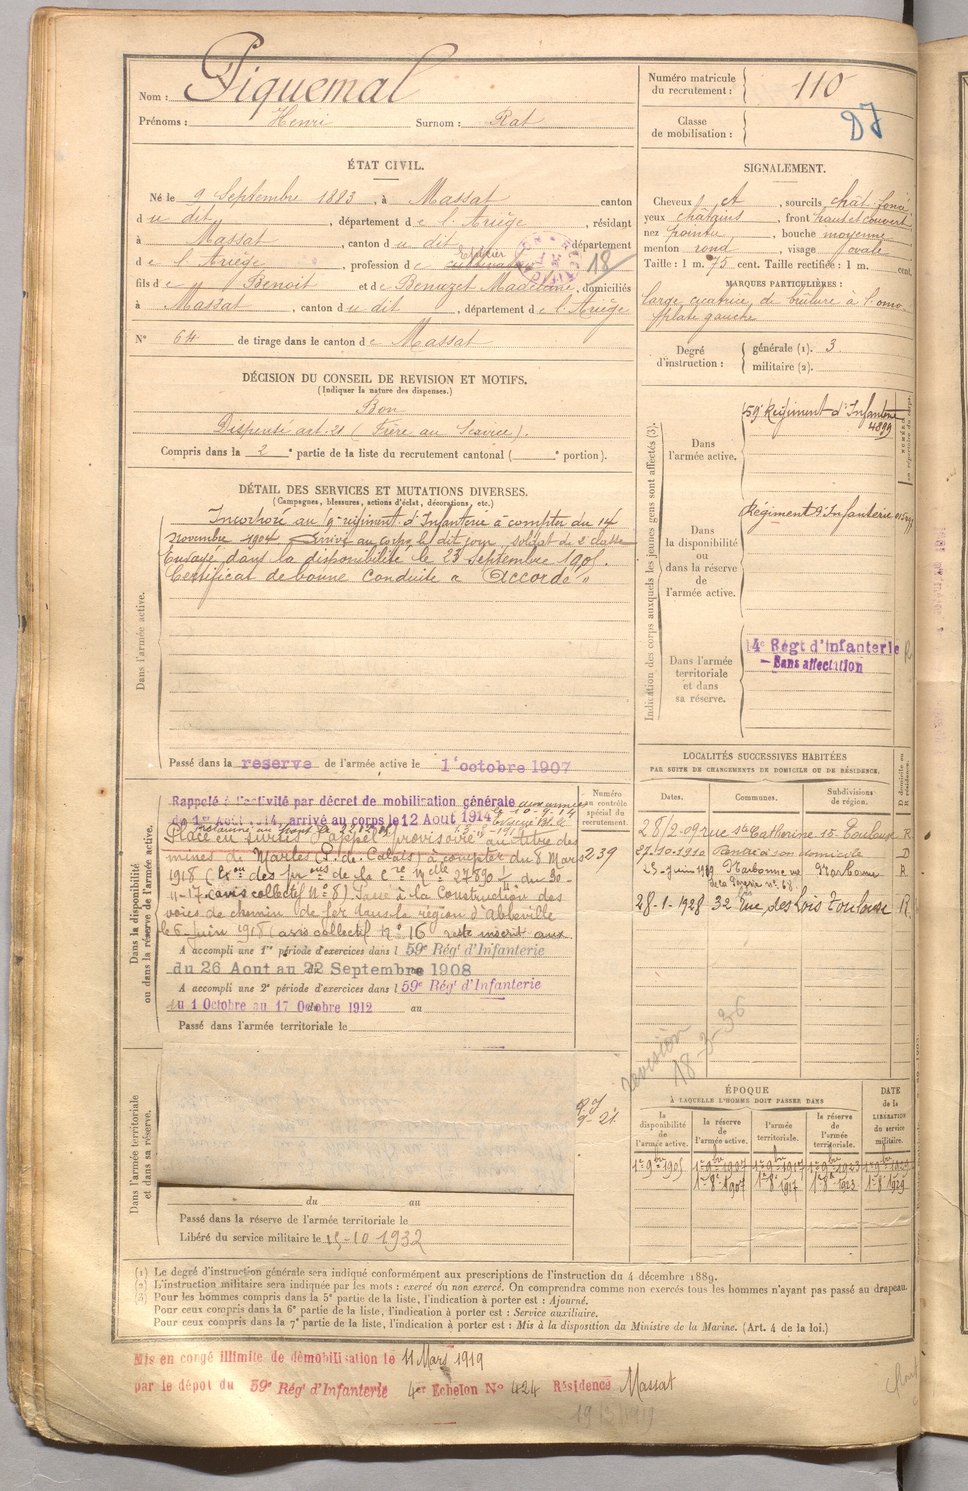 Nom : Piquemal
Prénoms : Henri Surnom : Rat
Numéro matricule
du recrutement : 110
Classe
de mobilisation :
ÉTAT CIVIL.
Né le 9 Septembre 1883, à Massat canton
du dit, département de l'Ariège, résidant
à Massat, canton du dit département
de l'Ariège, profession de cultivateur
18
fils de Benoit et de Benazet Madelaine, domiciliés
à Massat, canton du dit, département de l'Ariège
N° 64 de tirage dans le canton de Massat
SIGNALEMENT.
Cheveux et, sourcils chât. foncé
yeux châtains, front haut et couvert
nez pointu, bouche moyenne
menton rond, visage ovale
Taille : 1 m. 75 cent. Taille rectifiée : 1 m. cent.
MARQUES PARTICULIÈRES :
large cicatrice de brûlure à l'omo-
plate gauche
Degré
d'instruction :
générale (1). 3.
militaire (2).
DÉCISION DU CONSEIL DE REVISION ET MOTIFS.
(Indiquer la nature des dispenses.)
Bon
Dispensé art. 21 (Frère au Service).
Compris dans la 2e partie de la liste du recrutement cantonal ( e portion).
DÉTAIL DES SERVICES ET MUTATIONS DIVERSES.
(Campagnes, blessures, actions d'éclat, décorations, etc.)
Dans l'armée active.
Incorporé au 59e régiment d'Infanterie à compter du 14
novembre 1904 Arrivé au corps le dit jour, soldat de 2e classe
Envoyé dans la disponibilité le 23 Septembre 1905.
Certificat de bonne conduite "Accordé"
Passé dans la reserve de l'armée active le 1 octobre 1907
Indication des corps auxquels les jeunes gens sont affectés (3).
Dans
l'armée active.
59e Régiment d'Infanterie
4899
Dans
la disponibilité
ou
dans la réserve
de
l'armée active.
Régiment d'Infanterie
Dans l'armée
territoriale
et dans
sa réserve.
4e Régt d'Infanterie
- Sans affectation
Dans la disponibilité
ou dans la réserve de l'armée active.
Numéro
au contrôle
spécial du
recrutement.
239
Rappelé à l'activité par décret de mobilisation générale
du 1er Aout 1914, arrivé au corps le 12 Aout 1914
Placé en sursis d'appel provisoire au titre des
mines de Marles (P. de Calais) à compter du 8 Mars
1918
11-17 (avis collectif N° 8) Passé à la Construction des
voies de chemin de fer dans la région d'Abbeville
le 6 Juin 1918 (avis collectif N° 16 reste inscrit aux
A accompli une 1re période d'exercices dans l 59e Rég' d'Infanterie
du 26 Aout au 22 Septembre 1908
A accompli une 2e période d'exercices dans l 59e Rég' d'Infanterie
du 1 Octobre au 17 Octobre 1912 au
Passé dans l'armée territoriale le
LOCALITÉS SUCCESSIVES HABITÉES
PAR SUITE DE CHANGEMENTS DE DOMICILE OU DE RÉSIDENCE.
Dates. Communes. Subdivisions
de région.
28/2-09 rue Ste Catherine 15 Toulouse R
27-10-1910 Rentré à son domicile D
Narbonne Narbonne R
28-1-1928 32 Rue des Lois Toulouse R
revision
18-3-36
Dans l'armée territoriale
et dans sa réserve.
du au
Passé dans la réserve de l'armée territoriale le
Libéré du service militaire le 15-10 1932
ÉPOQUE
À LAQUELLE L'HOMME DOIT PASSER DANS
la
disponibilité
de
l'armée active.
la réserve
de
l'armée active.
l'armée
territoriale.
la réserve
de
l'armée
territoriale.
DATE
de la
LIBÉRATION
du service
militaire.
1er 9bre 1905 1er 9bre 1907 1er 9bre 1917 1er 9bre 1923
1er 8e 1907 1er 8e 1917 1er 8e 1923 1er 8e 1929
(1) Le degré d'instruction générale sera indiqué conformément aux prescriptions de l'instruction du 4 décembre 1889.
(2) L'instruction militaire sera indiquée par les mots : exercé ou non exercé. On comprendra comme non exercés tous les hommes n'ayant pas passé au drapeau.
(3) Pour les hommes compris dans la 5e partie de la liste, l'indication à porter est : Ajourné.
Pour ceux compris dans la 6e partie de la liste, l'indication à porter est : Service auxiliaire.
Pour ceux compris dans la 7e partie de la liste, l'indication à porter est : Mis à la disposition du Ministre de la Marine. (Art. 4 de la loi.)
Mis en congé illimité de démobilisation le 11 Mars 1919
par le dépot du 59e Rég' d'Infanterie 4er Echelon N° 424 Résidence Massat